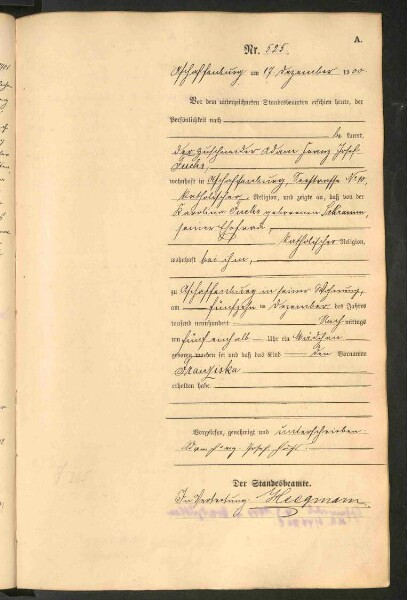 A.
Nr. 525.
Aschaffenburg am 17 Dezember 1900
Vor dem unterzeichneten Standesbeamten erschien heute, der
Persönlichkeit nach
be kannt,
der Zuschneider Adam Franz Josef
Fuchs,
wohnhaft in Aschaffenburg, No 10,
katholischer Religion, und zeigte an, daß von der
Karolina Fuchs geborenen Schramm,
seiner Ehefrau,
katholischer Religion,
wohnhaft bei ihm,
zu Aschaffenburg in seiner Wohnung,
am fünfzehn ten Dezember des Jahres
tausend neunhundert Nach mittags
um fünf einhalb Uhr ein Mädchen
geboren worden sei und daß das Kind den Vornamen
Franziska
erhalten habe.
Vorgelesen, genehmigt und unterschrieben
Josef
Der Standesbeamte.
In Vertretung Heegmann